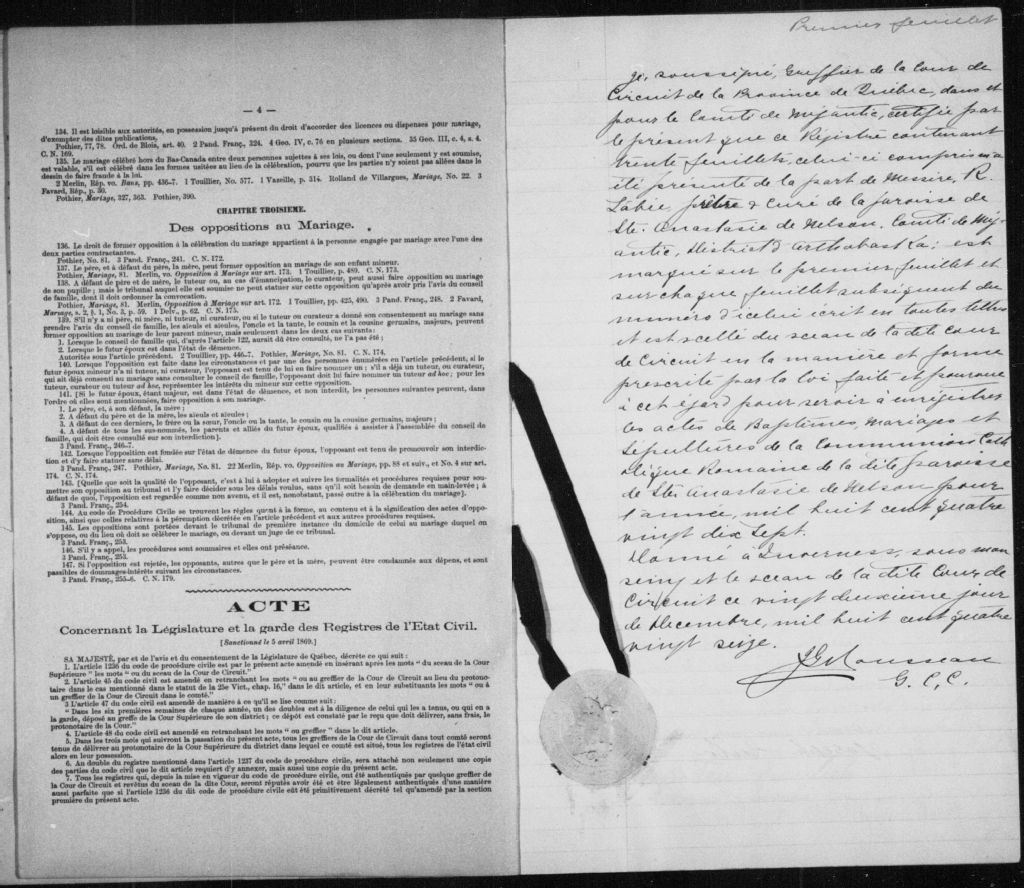 — 4 —
134. Il est loisible aux autorités, en possession jusqu'à présent du droit d'accorder des licences ou dispenses pour mariage,
d'exempter des dites publications.
Pothier, 77, 78. Ord. de Blois, art. 40. 2 Pand. Franç., 324. 4 Geo. IV, c. 76 en plusieurs sections. 35 Geo. III, c. 4, s. 4.
C. N. 169.
135. Le mariage célébré hors du Bas-Canada entre deux personnes sujettes à ses lois, ou dont l'une seulement y est soumise,
est valable, s'il est célébré dans les formes usitées au lieu de la célébration, pourvu que les parties n'y soient pas allées dans le
dessin de faire fraude à la loi.
2 Merlin, Rép. vo. Bans, pp. 436-7. 1 Touillier, No. 577. 1 Vazeille, p. 314. Rolland de Villargues, Mariage, No. 22. 3
Favard, Rép., p. 50.
Pothier, Mariage, 327, 363. Pothier, 390.
CHAPITRE TROISIEME.
Des oppositions au Mariage.
136. Le droit de former opposition à la célébration du mariage appartient à la personne engagée par mariage avec l'une des
deux parties contractantes.
Pothier, No. 81. 3 Pand. Franç., 241. C. N. 172.
137. Le père, et à défaut du père, la mère, peut former opposition au mariage de son enfant mineur.
Pothier, Mariage, 81. Merlin, vo. Opposition à Mariage sur art. 173. 1 Touillier, p. 489. C. N. 173.
138. A défaut de père et de mère, le tuteur ou, au cas d'émancipation, le curateur, peut aussi faire opposition au mariage
de son pupille; mais le tribunal auquel elle est soumise ne peut statuer sur cette opposition qu'après avoir pris l'avis du conseil
de famille, dont il doit ordonner la convocation.
Pothier, Mariage, 81. Merlin, Opposition à Mariage sur art. 172. 1 Touillier, pp. 425, 490. 3 Pand. Franç., 248. 2 Favard,
Mariage, s. 2, § 1, No. 3, p. 59. 1 Delv., p. 62. C. N. 175.
139. S'il n'y a ni père, ni mère, ni tuteur, ni curateur, ou si le tuteur ou curateur a donné son consentement au mariage sans
prendre l'avis du conseil de famille, les aïeuls et aïeules, l'oncle et la tante, le cousin et la cousine germains, majeurs, peuvent
former opposition au mariage de leur parent mineur, mais seulement dans les deux cas suivants :
1. Lorsque le conseil de famille qui, d'après l'article 122, aurait dû être consulté, ne l'a pas été ;
2. Lorsque le futur époux est dans l'état de démence.
Autorités sous l'article précédent. 2 Touillier, pp. 446-7. Pothier, Mariage, No. 81. C. N. 174.
140. Lorsque l'opposition est faite dans les circonstances et par une des personnes énumérées en l'article précédent, si le
futur époux mineur n'a ni tuteur, ni curateur, l'opposant est tenu de lui en faire nommer un ; s'il a déjà un tuteur, ou curateur,
qui ait déjà consenti au mariage sans consulter le conseil de famille, l'opposant doit lui faire nommer un tuteur ad hoc; pour les
tuteur, curateur ou tuteur ad hoc, représenter les intérêts du mineur sur cette opposition.
141. [Si le futur époux, étant majeur, est dans l'état de démence, et non interdit, les personnes suivantes peuvent, dans
l'ordre où elles sont mentionnées, faire opposition à son mariage.
1. Le père, et, à son défaut, la mère ;
2. A défaut du père et de la mère, les aïeuls et aïeules ;
3. A défaut de ces derniers, le frère ou la sœur, l'oncle ou la tante, le cousin ou la cousine germains, majeurs ;
4. A défaut de tous les sus-nommés, les parents et alliés du futur époux, qualifiés à assister à l'assemblée du conseil de
famille, qui doit être consulté sur son interdiction].
3 Pand. Franç., 246-7.
142. Lorsque l'opposition est fondée sur l'état de démence du futur époux, l'opposant est tenu de promouvoir son interdic-
tion et d'y faire statuer sans délai.
3 Pand. Franç., 247. Pothier, Mariage, No. 81. 22 Merlin, Rép. vo. Opposition au Mariage, pp. 88 et suiv., et No. 4 sur art.
174. C. N. 174.
143. [Quelle que soit la qualité de l'opposant, c'est à lui à adopter et suivre les formalités et procédures requises pour sou-
mettre son opposition au tribunal et l'y faire décider sous les délais voulus, sans qu'il soit besoin de demande en main-levée ; à
défaut de quoi, l'opposition est regardée comme non avenu, et il est, nonobstant, passé outre à la célébration du mariage].
3 Pand. Franç., 254.
144. Au code de Procédure Civile se trouvent les règles quant à la forme, au contenu et à la signification des actes d'oppo-
sition, ainsi que celles relatives à la péremption décrétée en l'article précédent et aux autres procédures requises.
145. Les oppositions sont portées devant le tribunal de première instance du domicile de celui au mariage duquel on
s'oppose, ou du lieu où doit se célébrer le mariage, ou devant un juge de ce tribunal.
3 Pand. Franç., 253.
146. S'il y a appel, les procédures sont sommaires et elles ont préséance.
3 Pand. Franç., 253.
147. Si l'opposition est rejetée, les opposants, autres que le père et la mère, peuvent être condamnés aux dépens, et sont
passibles de dommages-intérêts suivant les circonstances.
3 Pand. Franç., 255-6. C. N. 179.
ACTE
Concernant la Législature et la garde des Registres de l'Etat Civil.
[Sanctionné le 5 avril 1869.]
SA MAJESTÉ, par et de l'avis et du consentement de la Législature de Québec, décrète ce qui suit :
1. L'article 1236 du code de procédure civile est par le présent acte amendé en insérant après les mots "du sceau de la Cour
Supérieure" les mots "ou du sceau de la Cour de Circuit."
2. L'article 45 du code civil est amendé en retranchant les mots "ou au greffier de la Cour de Circuit au lieu du protono-
taire dans le cas mentionné dans le statut de la 25e Vict., chap. 16," dans le dit article, et en leur substituants les mots "ou à
un greffier de la Cour de Circuit dans le comté."
3 L'article 47 du code civil est amendé de manière à ce qu'il se lise comme suit :
"Dans les six premières semaines de chaque année, un des doubles est à la diligence de celui qui les a tenus, ou qui en a
la garde, déposé au greffe de la Cour Supérieure de son district ; ce dépôt est constaté par le reçu que doit délivrer, sans frais, le
protonotaire de la Cour."
4. L'article 48 du code civil est amendé en retranchant les mots "ou greffier" dans le dit article.
5. Dans les trois mois qui suivront la passation du présent acte, tous les greffiers de la Cour de Circuit dans tout comté seront
tenus de délivrer au protonotaire de la Cour Supérieure du district dans lequel ce comté est situé, tous les registres de l'état civil
alors en leur possession.
6. Au double du registre mentionné dans l'article 1237 du code de procédure civile, sera attaché non seulement une copie
des parties du code civil que le dit article requiert d'y annexer, mais aussi une copie du présent acte.
7. Tous les registres qui, depuis la mise en vigueur du code de procédure civile, ont été authentiqués par quelque greffier de
la Cour de Circuit et revêtus du sceau de la dite Cour, seront réputés avoir été et être légalement authentiqués d'une manière
aussi parfaite que si l'article 1236 du dit code de procédure civile eût été primitivement décrété tel qu'amendé par la section
première du présent acte.
Premier feuillet
Je, soussigné, Greffier de la Cour de
Circuit de la Province de Québec, dans et
pour le Comté de Mégantic, certifie par
le présent que ce Registre contenant
trente feuillets, celui-ci compris, m'a
été présenté de la part de Messire, R.
Labée, prêtre & Curé de la paroisse de
Ste Anastasie de Nelson, Comté de Még-
antic, District d'Arthabaska ; est
marqué sur le premier feuillet et
sur chaque feuillet subséquent du
numéro d'icelui écrit en toutes lettres
et est scellé du sceau de la dite cour
de circuit en la manière et forme
prescrite par la loi faite et pourvue
à cet égard pour servir à enregistrer
les actes de Baptêmes, Mariages et
Sépultures de la Communion Cath
olique Romaine de la dite paroisse
de Ste Anastasie de Nelson pour
l'année, mil huit cent quatre
vingt dix Sept.
Donné à Inverness, sous mon
seing et le sceau de la dite Cour de
Circuit ce vingt deuxième jour
de Décembre, mil huit cent quatre
vingt seize.
Rousseau
G. C. C.